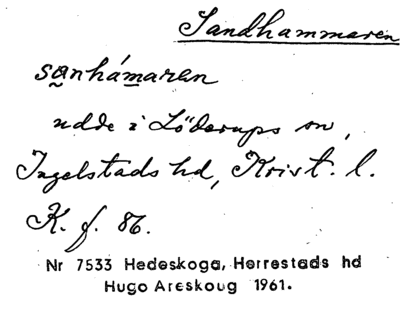 Sandhammaren
sanhámaren
udde i Löderups sn,
Ingelstads hd, Krist. l.
K. f. 86.
Nr 7533 Hedeskoga, Herrestads hd
Hugo Areskoug 1961.